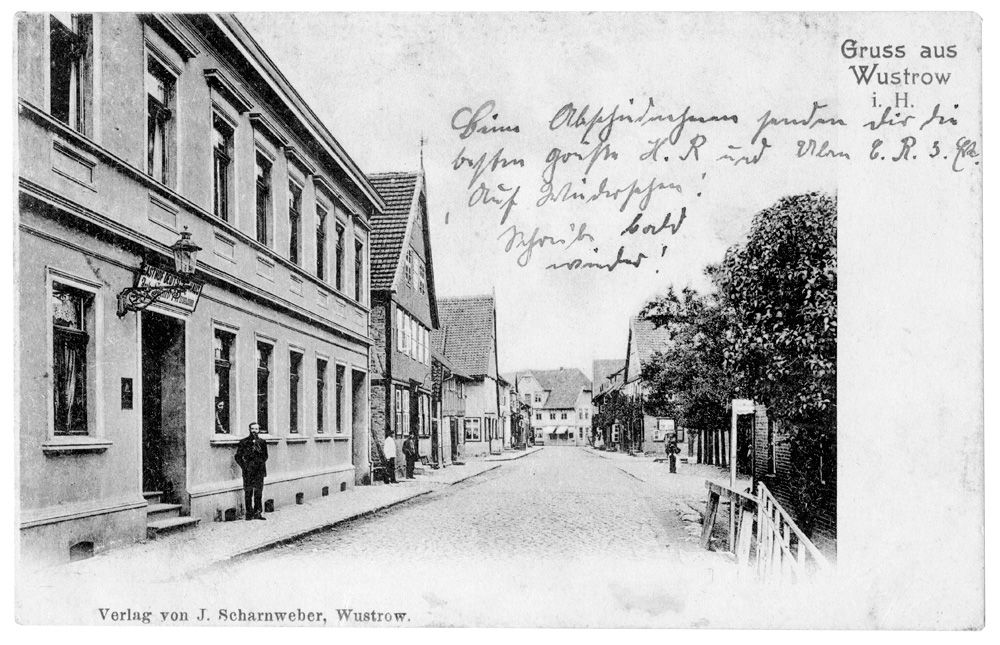 Gruss aus
Wustrow
i. H.
Beim Abschiednehmen senden dir die
besten Grüße H. R und Ulan E. R. 3. Esk.
Auf Wiedersehen!
Schreibe bald
wieder!
Verlag von J. Scharnweber, Wustrow.